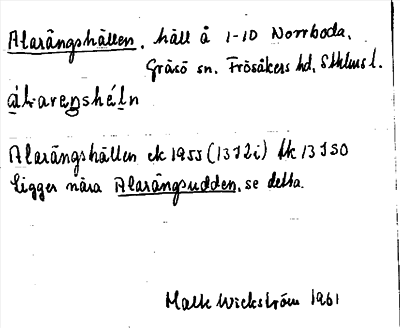 Alarängshällen, häll å 1-10 Norrboda,
Gräsö sn. Frösåkers hd, Sthlms l.
álarenshéln
Alarängshällen ek 1955 (13J2i) tk 13JSO
ligger nära Alarängsudden, se detta.
Wickström 1961